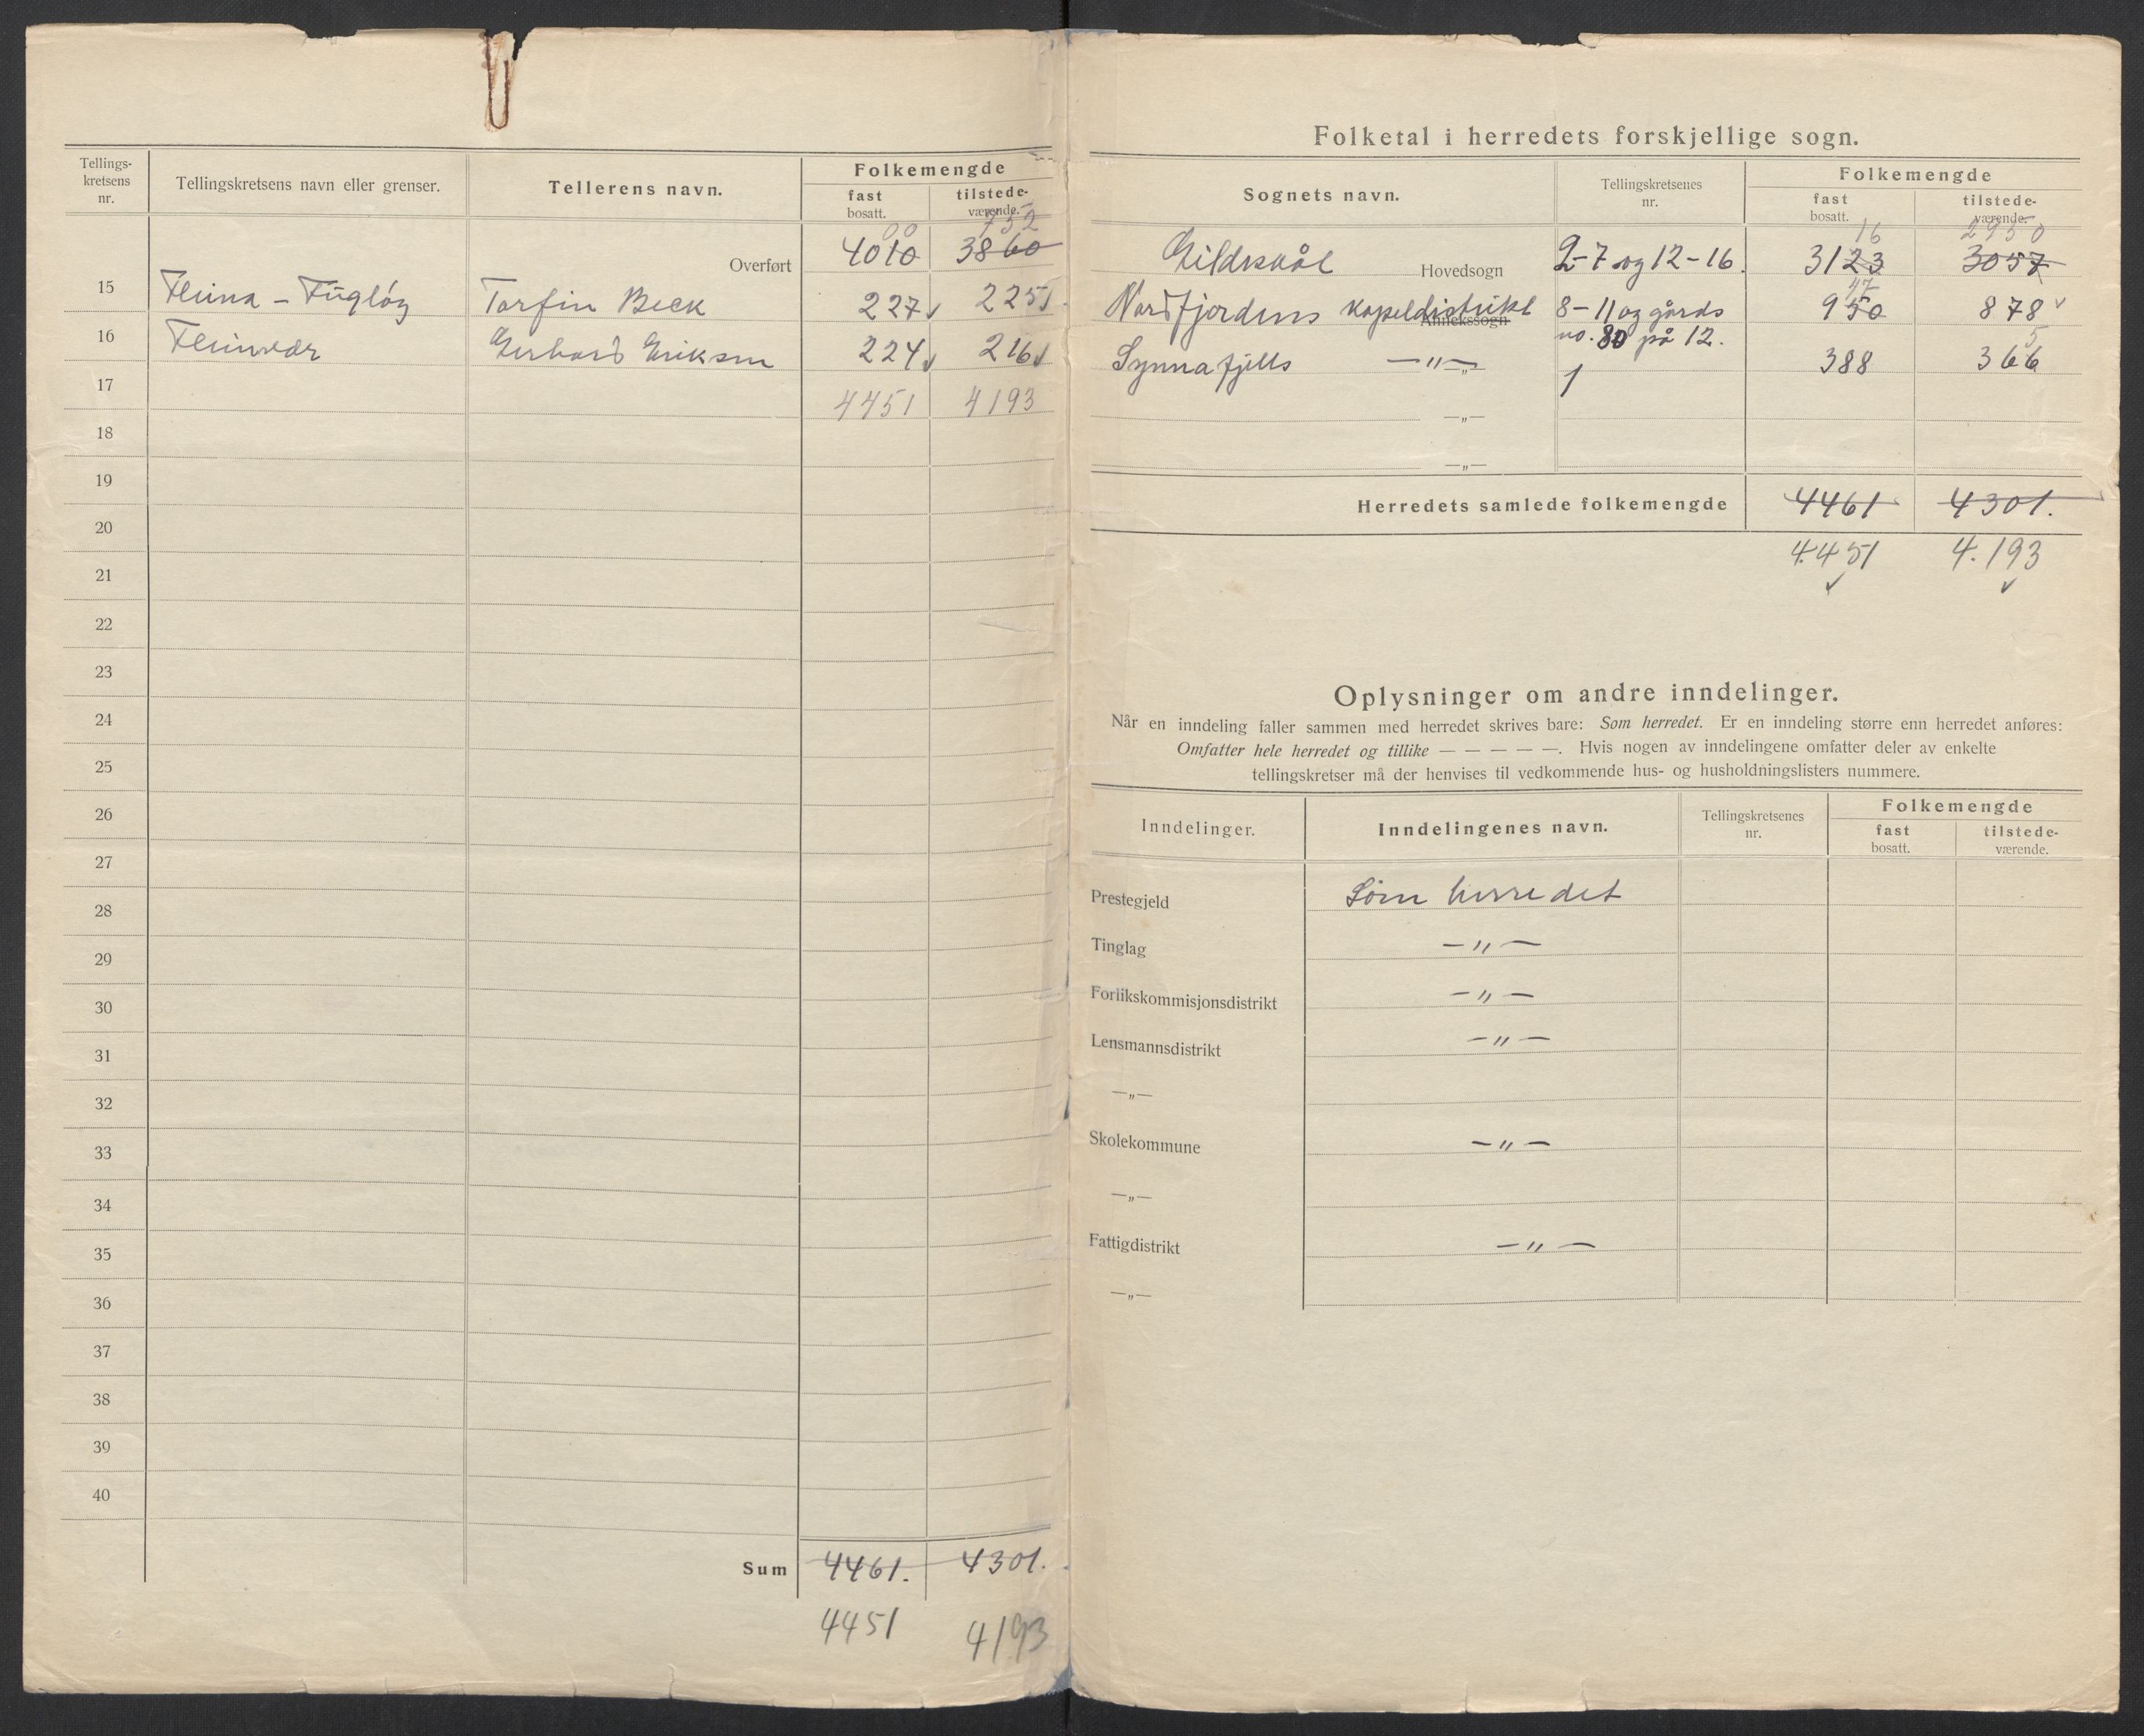 Tellings-kretsens nr. Tellingskretsens navn eller grenser. Tellerens navn. Folkemengde
fast bosatt. tilstede-værende.
00 752
Overført 4010 3860
15 Fleina - Fugløy Torfin Beck 227 225
16 Fleinvær Gerhard Eriksen 224 216
17 4451 4193
18
19
20
21
22
23
24
25
26
27
28
29
30
31
32
33
34
35
36
37
38
39
40
Sum 4461. 4301.
4451 4193
Folketal i herredets forskjellige sogn.
Sognets navn. Tellingskretsenes nr. Folkemengde
fast bosatt. tilstede-værende.
16 2950
Gildeskål Hovedsogn 2-7 og 12-16. 3123 3057
47
Nordfjordens kapeldistrikt Annekssogn 8-11 og gårds 950 878
no. 80 på 12. 5
Synnafjells —"— —„— 1 388 366
—„—
—„—
Herredets samlede folkemengde 4461 4301.
4.451 4.193
Oplysninger om andre inndelinger.
Når en inndeling faller sammen med herredet skrives bare: Som herredet. Er en inndeling større enn herredet anføres:
Omfatter hele herredet og tillike — — — — —. Hvis nogen av inndelingene omfatter deler av enkelte
tellingskretser må der henvises til vedkommende hus- og husholdningslisters nummere.
Inndelinger. Inndelingenes navn. Tellingskretsenes nr. Folkemengde
fast bosatt. tilstede-værende.
Prestegjeld Som herredet
Tinglag —"—
Forlikskommisjonsdistrikt —"—
Lensmannsdistrikt —"—
—„—
Skolekommune —"—
—„—
Fattigdistrikt —"—
—„—